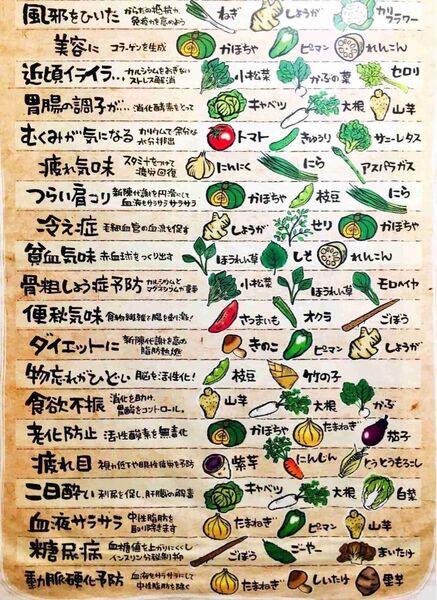 風邪をひいた からだの抵抗力 免疫力を高めよう ねぎ しょうが カリフラワー
美容に コラーゲンを生成 かぼちゃ ピーマン れんこん
近頃イライラ… カルシウムをおぎない ストレス解消 小松菜 かぶの葉 セロリ
胃腸の調子が… 消化酵素をとって キャベツ 大根 山芋
むくみが気になる カリウムで余分な 水分排出 トマト きゅうり サニーレタス
疲れ気味 スタミナをつけて 疲労回復 にんにく にら アスパラガス
つらい肩こり 新陳代謝を円滑にして 血液をサラサラサラサラ かぼちゃ 枝豆 にら
冷え症 毛細血管の血流を促す しょうが せり かぼちゃ
貧血気味 赤血球をつくり出す ほうれん草 しそ れんこん
骨粗しょう症予防 カルシウムと マグネシウムが重要 小松菜 ほうれん草 モロヘイヤ
便秘気味 食物繊維で腸を さつまいも オクラ ごぼう
ダイエットに 新陳代謝を高め 脂肪燃焼 きのこ ピーマン しょうが
物忘れがひどい 脳を活性化! 枝豆 竹の子
食欲不振 消化を助け、 胃酸をコントロール。 山芋 大根 かぶ
老化防止 活性酸素を無毒化 かぼちゃ たまねぎ 茄子
疲れ目 視力低下や眼精疲労を予防 紫芋 にんじん とうもろこし
二日酔い 利尿を促し、肝臓の解毒 キャベツ 大根 白菜
血液サラサラ 中性脂肪を 取り除きます たまねぎ ピーマン 山芋
糖尿病 血糖値を上がりにくくし インスリン分泌制御 ごぼう ごーやー まいたけ
動脈硬化予防 血液をサラサラにして 中性脂肪を除く たまねぎ しいたけ 里芋